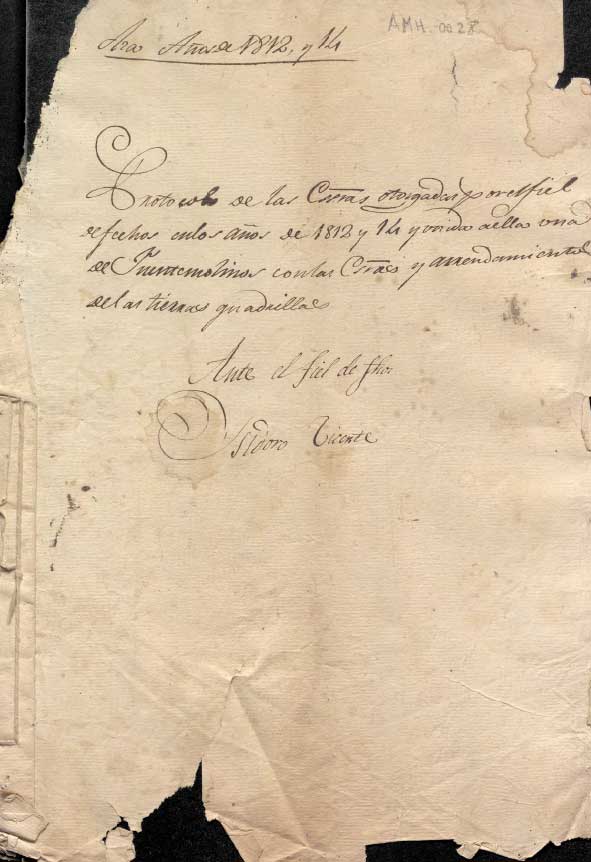 AMH-0028
Años de 1812, y 14
Protocolo de las Cʳᵃˢ otorgadas por el fiel
defechos en los años de 1812 y 14 y unida a ella una
de Fuentemolinos con las Cʳᵃˢ y arrendamiento
de las tierras quadrillas
Ante el fiel de fhos
Isidoro Vicente